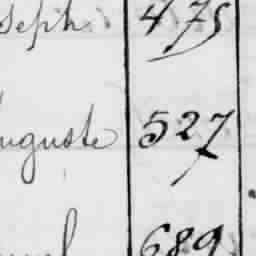 seph 475
uguste 527
689